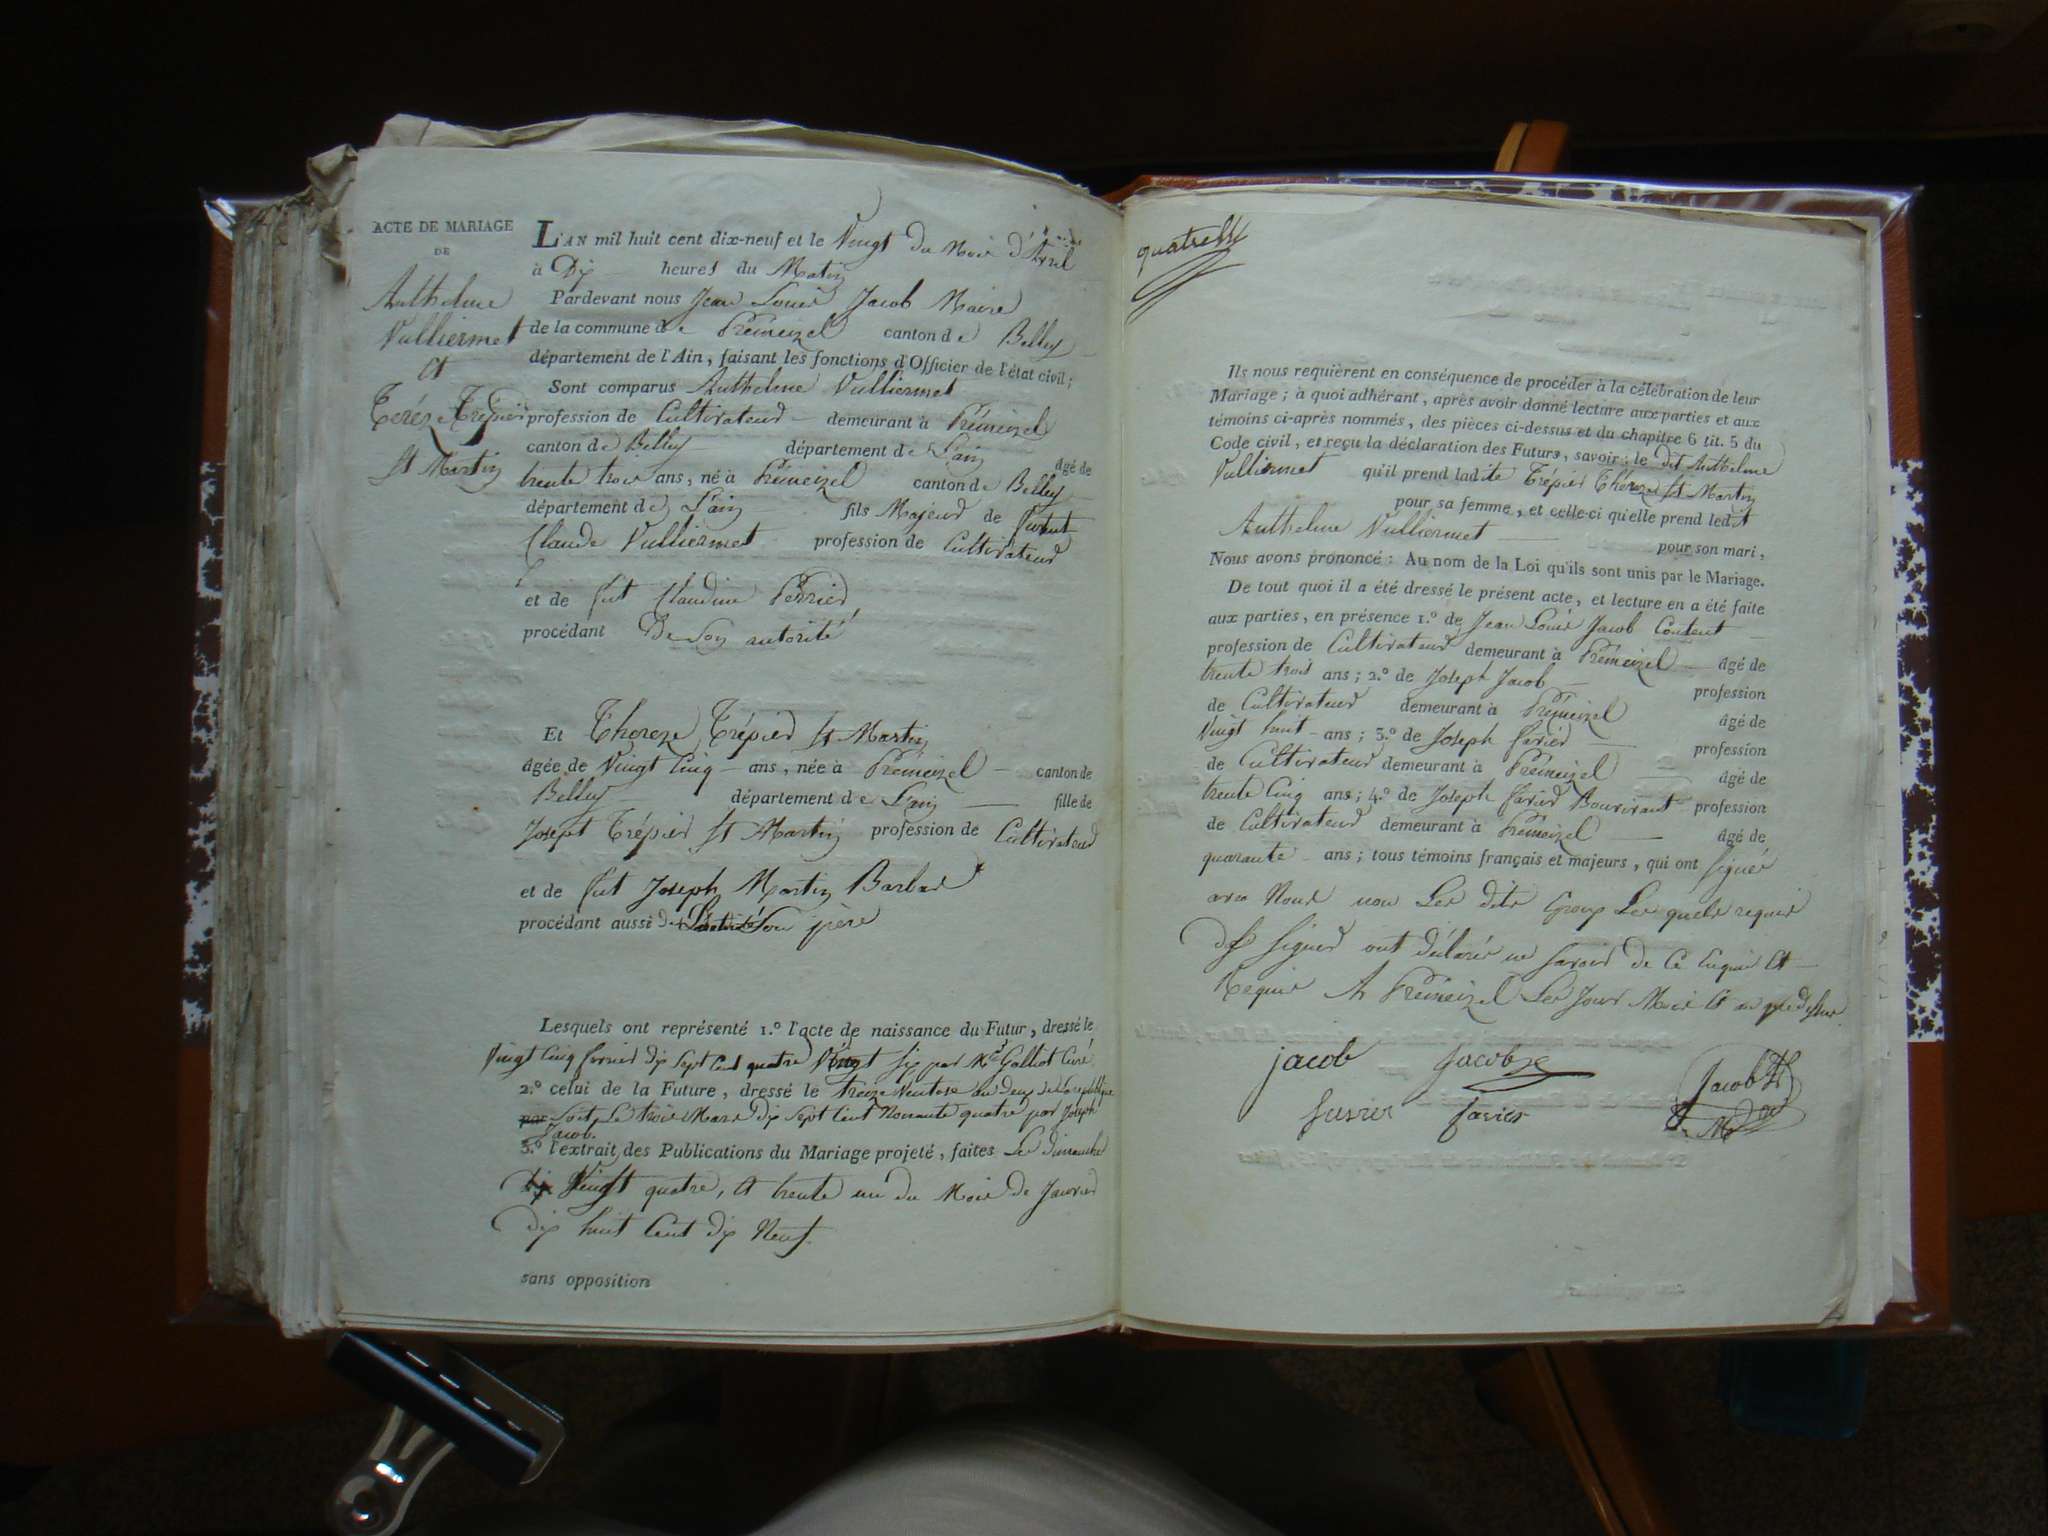 ACTE DE MARIAGE
DE
Anthelme
Vulliermet
et
Terèze Trépier
St Martin
L'AN mil huit cent dix-neuf et le Vingt du Mois d'Avril
à Dix heures du Matin
Pardevant nous Jean Louis Jacob Maire
de la commune de Prémeizel canton de Belley
département de l'Ain, faisant les fonctions d'Officier de l'état civil;
Sont comparus Anthelme Vulliermet
profession de Cultivateur demeurant à Prémeizel
canton de Belley département de L'ain âgé de
trente trois ans, né à Prémeizel canton de Belley
département de L'ain fils Majeur de
Claude Vulliermet profession de Cultivateur
et de fut Claudine Perrier
procédant De Son autorité
Et Thereze Trépier St Martin
âgée de Vingt Cinq ans, née à Prémeizel canton de
Belley département de L'ain fille de
Joseph Trépier St Martin profession de Cultivateur
et de fut Joseph Martin Barbar
procédant aussi de Son père
Lesquels ont représenté 1.º l'acte de naissance du Futur, dressé le
Vingt Cinq fevrier dix Sept Cent quatre Vingt Six par Mr Galliot Curé
2.º celui de la Future, dressé le treize Ventose an deux de la république
Soit Le trois Mars dix Sept Cent Nonante quatre par Joseph
Jacob.
3.º l'extrait des Publications du Mariage projeté, faites Les dimanche
Vingt quatre, et trente un du Mois de Janvier
dix huit Cent dix Neuf.
sans opposition
quatre
Ils nous requièrent en conséquence de procéder à la célébration de leur
Mariage; à quoi adhérant, après avoir donné lecture aux parties et aux
témoins ci-après nommés, des pièces ci-dessus et du chapitre 6 tit. 5 du
Code civil, et reçu la déclaration des Futurs, savoir: le dit Anthelme
Vulliermet qu'il prend ladite Trépier Théreze St Martin
pour sa femme, et celle-ci qu'elle prend ledit
Anthelme Vulliermet pour son mari,
Nous avons prononcé: Au nom de la Loi qu'ils sont unis par le Mariage.
De tout quoi il a été dressé le présent acte, et lecture en a été faite
aux parties, en présence 1.º de Jean Louis Jacob Content
profession de Cultivateur demeurant à Prémeizel âgé de
trente trois ans; 2.º de Joseph Jacob profession
de Cultivateur demeurant à Prémeizel âgé de
Vingt huit ans; 3.º de Joseph favier profession
de Cultivateur demeurant à Prémeizel âgé de
trente Cinq ans; 4.º de Joseph favier Bourivant profession
de Cultivateur demeurant à Prémeizel âgé de
quarante ans; tous témoins français et majeurs, qui ont Signés
avec Nous non Les dits Epoux Les quels requis
de Signer ont déclarés ne Savoir de Ce Enquis et
Requis A Prémeizel Les Jour Mois et an que dessus
jacob Jacob Jacob
favier favier